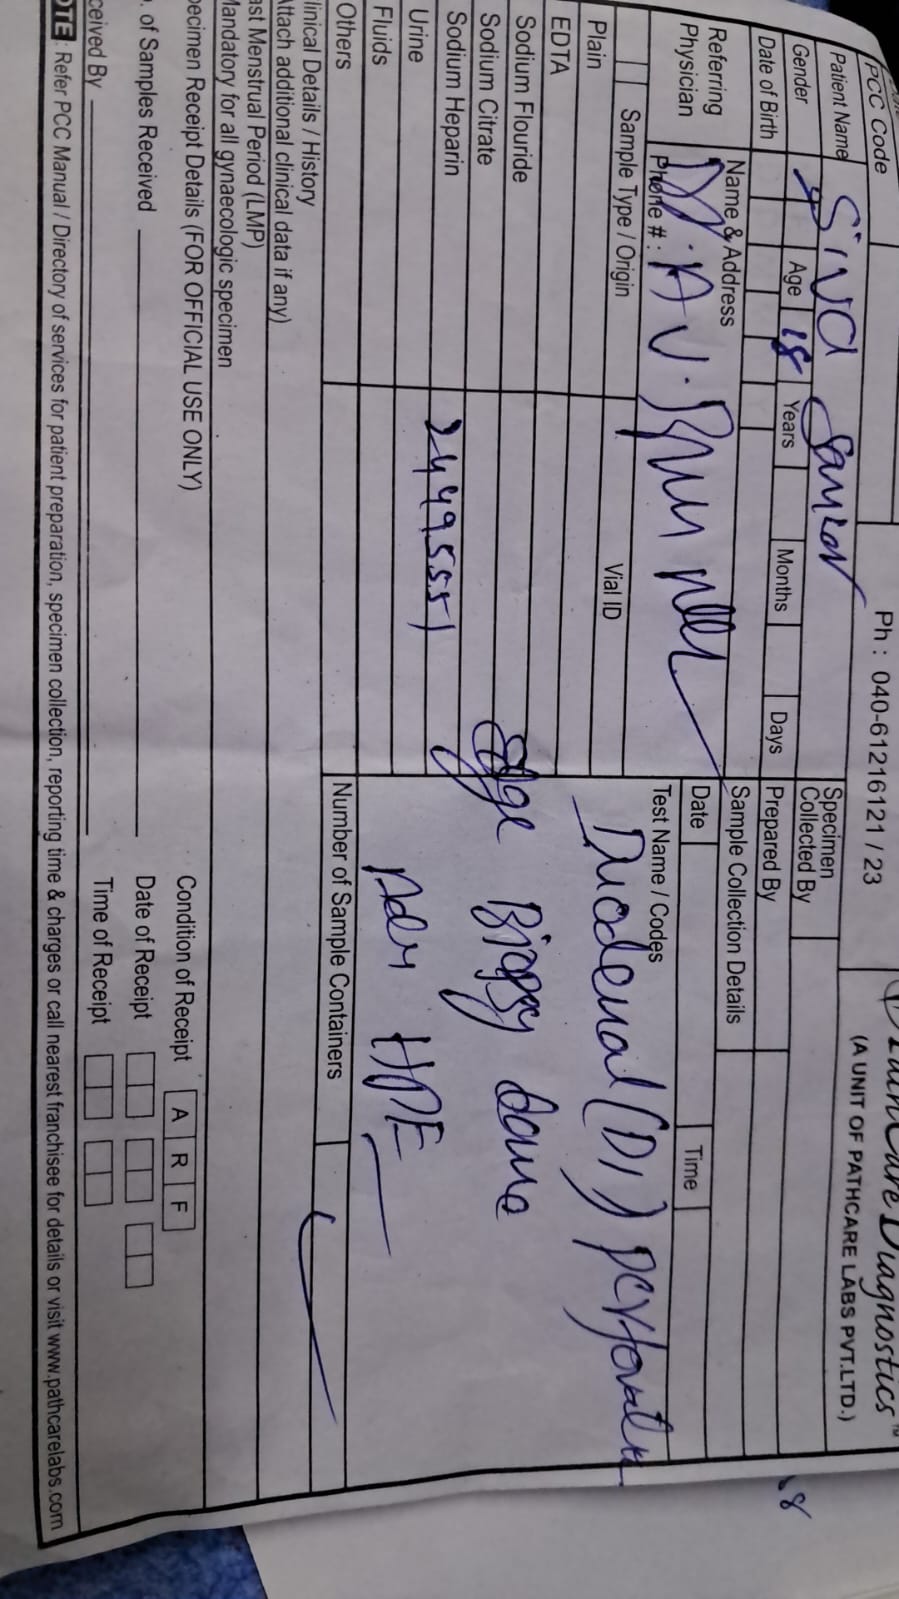 PathCare Diagnostics
(A UNIT OF PATHCARE LABS PVT.LTD.)
Ph : 040-61216121 / 23
PCC Code
Patient Name Siva
Gender Age 18 Years Months Days
Date of Birth
Referring Physician
Name & Address
Phone # :
Specimen Collected By
Prepared By
Sample Collection Details
Date Time
Sample Type / Origin Vial ID
Plain
EDTA
Sodium Flouride
Sodium Citrate
Sodium Heparin
Urine
Fluids
Others
24495551
Test Name / Codes
Duodenal (D1)
Edge Biopsy
HPE
Number of Sample Containers
linical Details / History
ttach additional clinical data if any)
ast Menstrual Period (LMP)
Mandatory for all gynaecologic specimen
pecimen Receipt Details (FOR OFFICIAL USE ONLY)
. of Samples Received
ceived By
Condition of Receipt A R F
Date of Receipt
Time of Receipt
OTE : Refer PCC Manual / Directory of services for patient preparation, specimen collection, reporting time & charges or call nearest franchisee for details or visit www.pathcarelabs.com